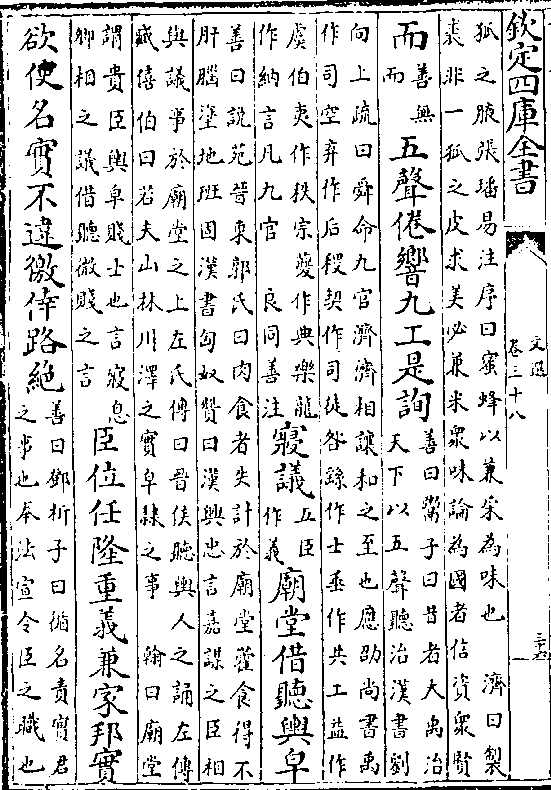 欽定四庫全書
文選
卷三十八
狐之腋張璠易注序曰蜜蜂以兼采為味也 濟曰製
裘非一狐之皮求美必兼米衆味論為國者信資衆賢
而
善無
而
五聲倦響九工是詢
善曰鬻子曰昔者大禹治
天下以五聲聽治漢書劉
向上疏曰舜命九官濟濟相讓和之至也應劭尚書禹
作司空弃作后稷契作司徒咎繇作士垂作共工益作
虞伯夷作秩宗夔作典樂龍
作納言凡九官 良同善注
寢議
五臣
作義
廟堂借聽輿皁
善曰說苑晉東郭氏曰肉食者失計於廟堂藿食得不
肝腦塗地班固漢書匈奴贊曰漢興忠言嘉謀之臣相
與議事於廟堂之上左氏傳曰晉侯聽輿人之誦左傳
臧僖伯曰若夫山林川澤之實皁隸之事 翰曰廟堂
謂貴臣輿皁賤士也言寢息
卿相之議借聽微賤之言
臣位任隆重義兼家邦實
欲使名實不違徼倖路絶
善曰鄧析子曰循名責實君
之事也奉法宣令臣之職也